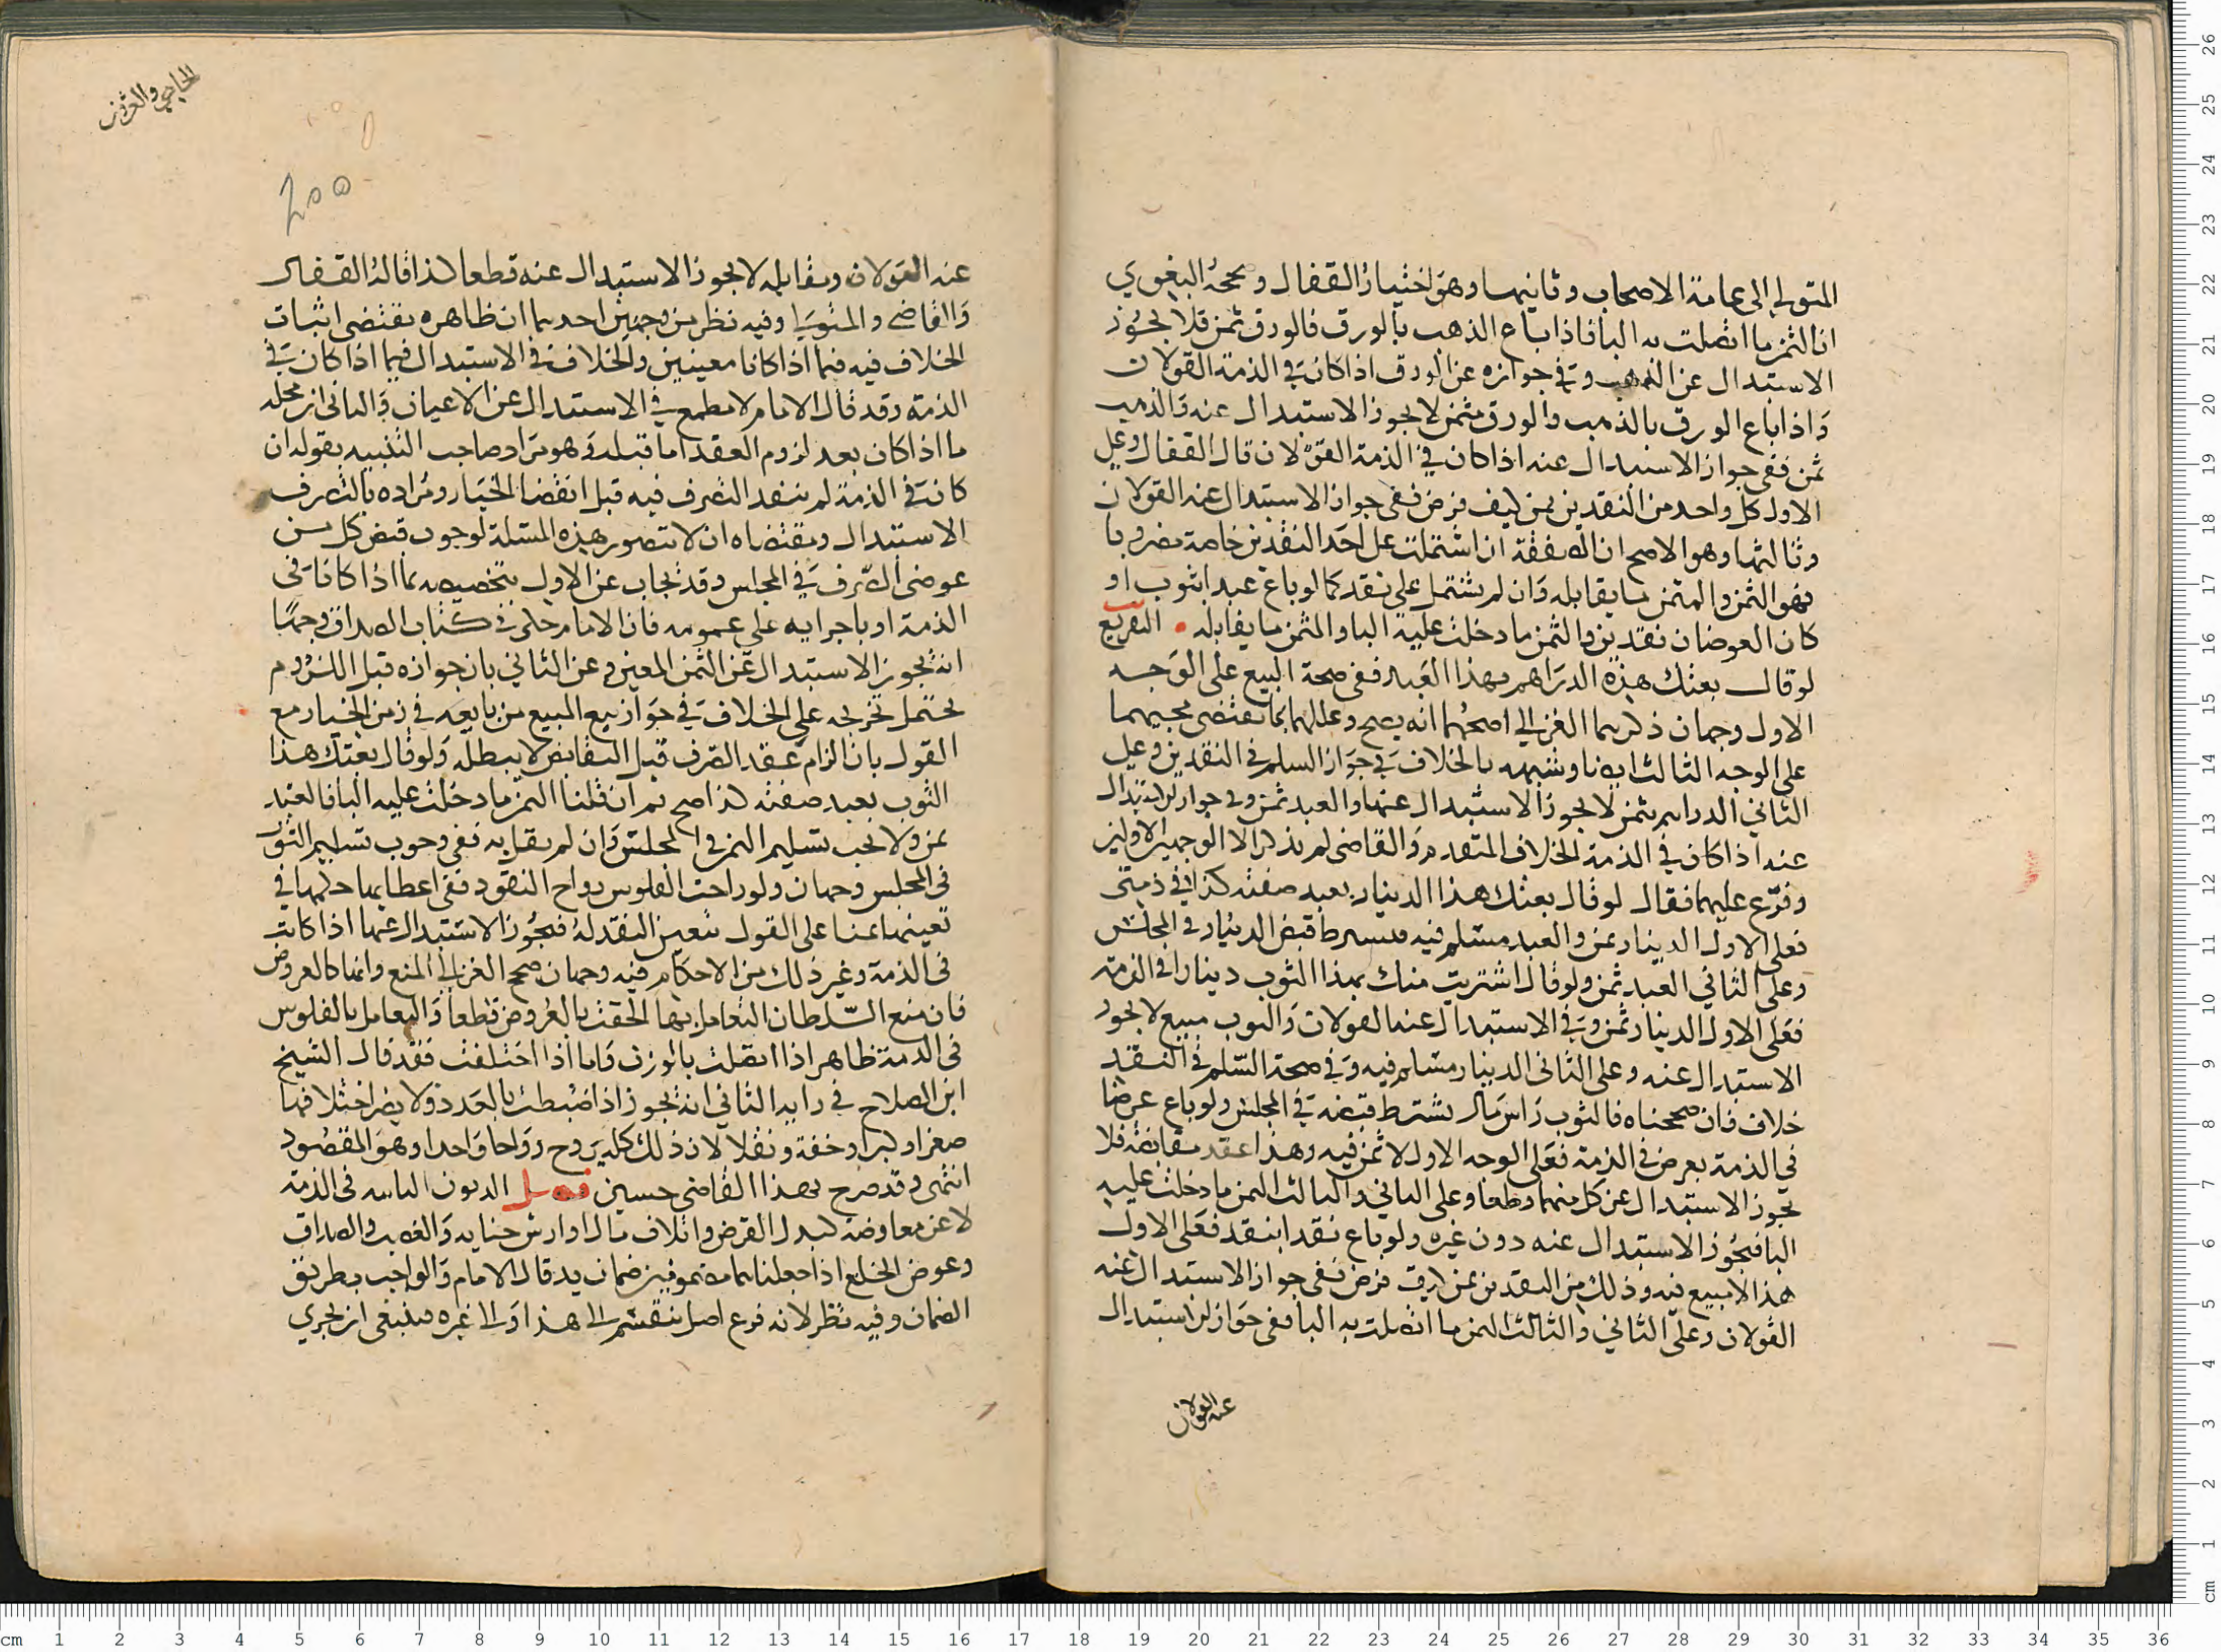 المتولي إلى عامة الاصحاب وثانيهما وهو اختيار القفال وصححه البغوي
ان الثمن ما اتصلت به البا فاذا باع الذهب بالورق فالورق ثمن فلا يجوز
الاستبدال عن الذهب وفي جوازه عن الورق اذا كان في الذمة القولان
واذا باع الورق بالذهب والورق مثمن لا يجوز الاستبدال عنه والذهب
ثمن ففي جواز الاستبدال عنه اذا كان في الذمة القولان قال القفال وعلى
الاول كل واحد من النقدين ثمن كيف فرض ففي جواز الاستبدال عنه القولان
وثالثها وهو الاصح ان الصفقة ان اشتملت على احد النقدين خاصة مضروبا
فهو الثمن والمثمن ما يقابله وان لم يشتمل على نقد كما لو باع عبدا بثوب او
كان العوضان نقدين والثمن ما دخلت عليه البا والمثمن ما يقابله • التفريع
لو قال بعتك هذه الدراهم بهذا العبد ففي صحة البيع على الوجه
الاول وجهان ذكرهما الغزالي اصحهما انه يصح وعللهما بما يقتضي مجيهما
على الوجه الثالث ايضا وشبهه بالخلاف في جواز السلم في النقدين وعلى
الثاني الدراهم مثمن لا يجوز الاستبدال عنها والعبد ثمن وفي جواز الاستبدال
عنه اذا كان في الذمة الخلاف المتقدم والقاضي لم يذكر الا الوجهين الاولين
وفرع عليهما فقال لو قال بعتك هذا الدينار بعبد صفته كذا في ذمتي
فعلى الاول الدينار ثمن والعبد مسلم فيه فيشترط قبض الدينار في المجلس
وعلى الثاني العبد ثمن ولو قال اشتريت منك بهذا الثوب دينارا في الذمة
فعلى الاول الدينار ثمن وفي الاستبدال عنه القولان والثوب مبيع لا يجوز
الاستبدال عنه وعلى الثاني الدينار مسلم فيه وفي صحة السلم في النقد
خلاف فان صححناه فالثوب راس مال يشترط قبضه في المجلس ولو باع عرضا
في الذمة بعرض في الذمة فعلى الوجه الاول لا ثمن فيه وهذا عقد مقابضة فلا
يجوز الاستبدال عن كل منهما قطعا وعلى الثاني والثالث الثمن ما دخلت عليه
البا فيجوز الاستبدال عنه دون غيره ولو باع نقدا بنقد فعلى الاول
هذا لا مبيع فيه وذلك من النقدين ثمن فرض ففي جواز الاستبدال عنه
القولان وعلى الثاني والثالث الثمن ما اتصلت به البا ففي جواز الاستبدال
عنه القولان
الخاص والعرف
٢٥٥
عنه القولان ومقابله لا يجوز الاستبدال عنه قطعا كذا قاله القفال
والقاضي والمتولي وفيه نظر من وجهين احدهما ان ظاهره يقتضي اثبات
الخلاف فيه فيما اذا كانا معينين والخلاف في الاستبدال فيما اذا كان في
الذمة وقد قال الامام لا مطمع في الاستبدال عن الاعيان والثاني ان محله
ما اذا كان بعد لزوم العقد اما قبله وهو مراد صاحب التنبيه بقوله ان
كانت في الذمة لم ينفذ التصرف فيه قبل انقضا الخيار ومراده بالتصرف
الاستبدال ومقتضاه ان لا تتصور هذه المسئلة لوجوب قبض كل من
عوضي الصرف في المجلس وقد يجاب عن الاول بتخصيصه بما اذا كانا في
الذمة او باجرايه على عمومه فان الامام حكى في كتاب الصداق وجها
انه يجوز الاستبدال عن الثمن المعين وعن الثاني بان جوازه قبل اللزوم
يحتمل تخريجه على الخلاف في جواز بيع المبيع من بايعه في زمن الخيار مع
القول بان الزام عقد الصرف قبل التقابض لا يبطله ولو قال بعتك هذا
الثوب بعبد صفته كذا صح ثم ان قلنا الثمن ما دخلت عليه البا فالعبد
ثمن ولا يجب تسليم الثمن في المجلس وان لم نقل به ففي وجوب تسليم الثوب
في المجلس وجهان ولو راجت الفلوس رواج النقود ففي اعطايها حكمها في
تعينها عنا على القول بتعين النقد له فيجوز الاستبدال عنها اذا كانت
في الذمة وغير ذلك من الاحكام فيه وجهان صحح الغزالي المنع وانها كالعروض
فان منع السلطان التعامل بها الحقت بالعروض قطعا والتعامل بالفلوس
في الذمة ظاهر اذا اتصلت بالوزن واما اذا اختلفت فقد قال الشيخ
ابن الصلاح في رايه الثاني انه يجوز اذا ضبطت بالعدد ولا يضر اختلافها
صغرا وكبرا وخفة وثقلا لان ذلك كله يروج رواجا واحدا وهو المقصود
انتهى وقد صرح بهذا القاضي حسين فصل الديون الثابتة في الذمة
لا عن معاوضة كبدل القرض واتلاف مال او ارش جنايه والغصب والصداق
وعوض الخلع اذا جعلناهما مضمونين ضمان يد قال الامام والواجب بطريق
الضمان وفيه نظر لانه فرع اصل ينقسم الى هذا والى غيره فينبغي ان يجري